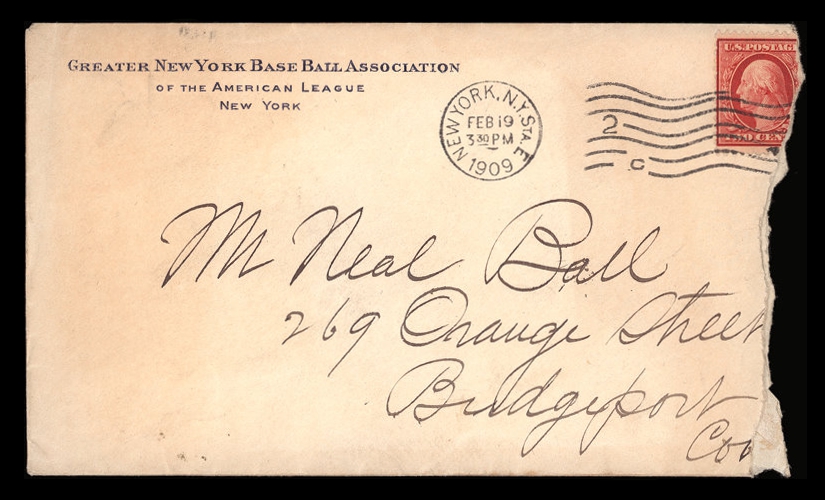 GREATER NEW YORK BASE BALL ASSOCIATION
OF THE AMERICAN LEAGUE
NEW YORK
NEW YORK, N.Y. STA. E
FEB 19
3 30 PM
1909
2
C
U.S. POSTAG
WO CEN
Mr Neal Ball
269 Orange Street
Bridgeport
Con